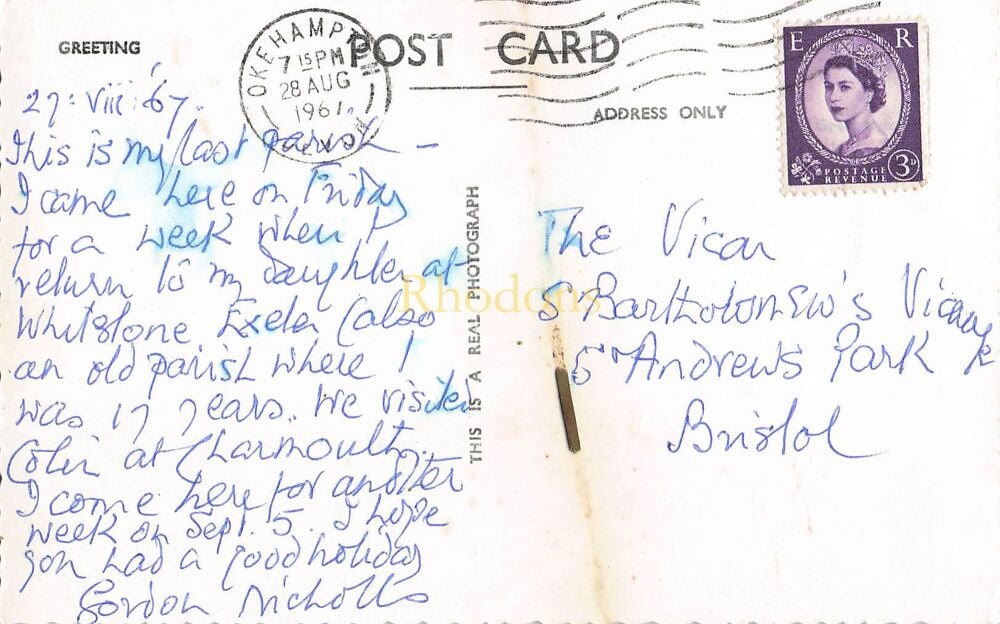 GREETING
POST CARD
OKEHAMPTON
7 15 PM
28 AUG
1967
DEVON
ADDRESS ONLY
E R
POSTAGE
REVENUE
3D
27: viii '67.
This is my last parish –
I came here on Friday
for a week when I
return to my daughter at
Whitstone Exeter (also
an old parish where I
was 17 years. We visited
Colin at Charmouth.
I come here for another
week on Sept. 5. I hope
you had a good holiday
Gordon Nicholls
THIS IS A REAL PHOTOGRAPH
Rhodons
The Vicar
St Bartholomew's Vicarage
St Andrews Park
Bristol